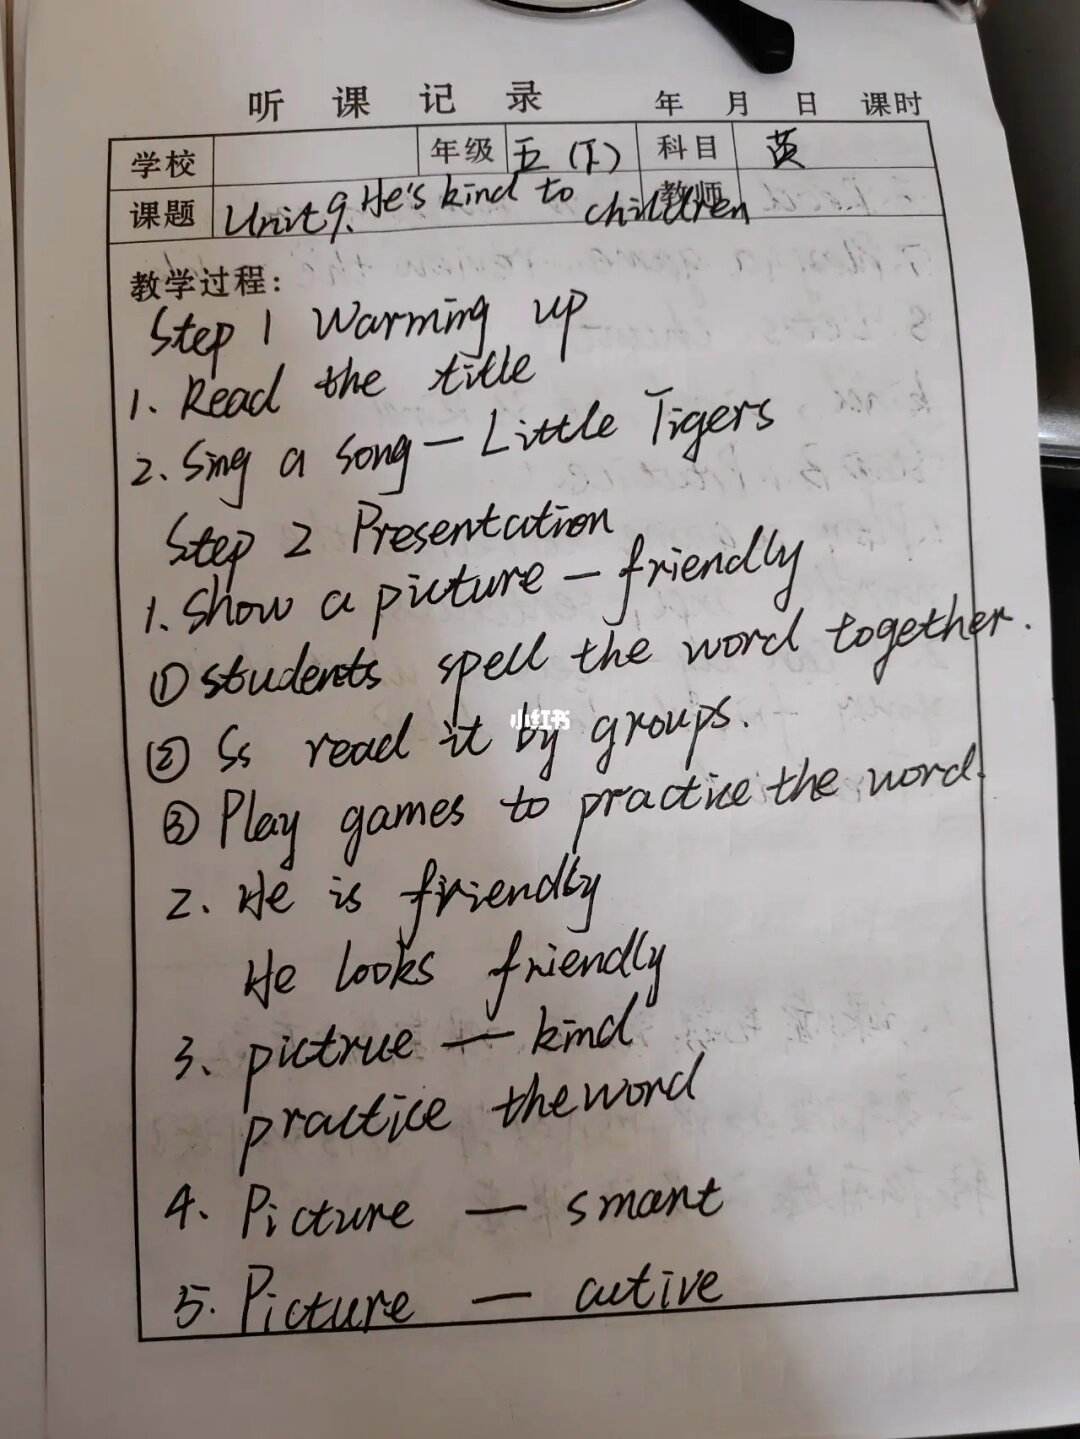 听 课 记 录 年 月 日 课时
学校 年级 五（下） 科目 英
课题 Unit9. He's kind to children 教师
教学过程：
Step 1 Warming up
1. Read the title
2. Sing a song — Little Tigers
Step 2 Presentation
1. Show a picture — friendly
①students spell the word together.
② Ss read it by groups.
小红书
③ Play games to practice the word.
2. He is friendly
He looks friendly
3. pictrue — kind
practice the word
4. Picture — smart
5. Picture — active